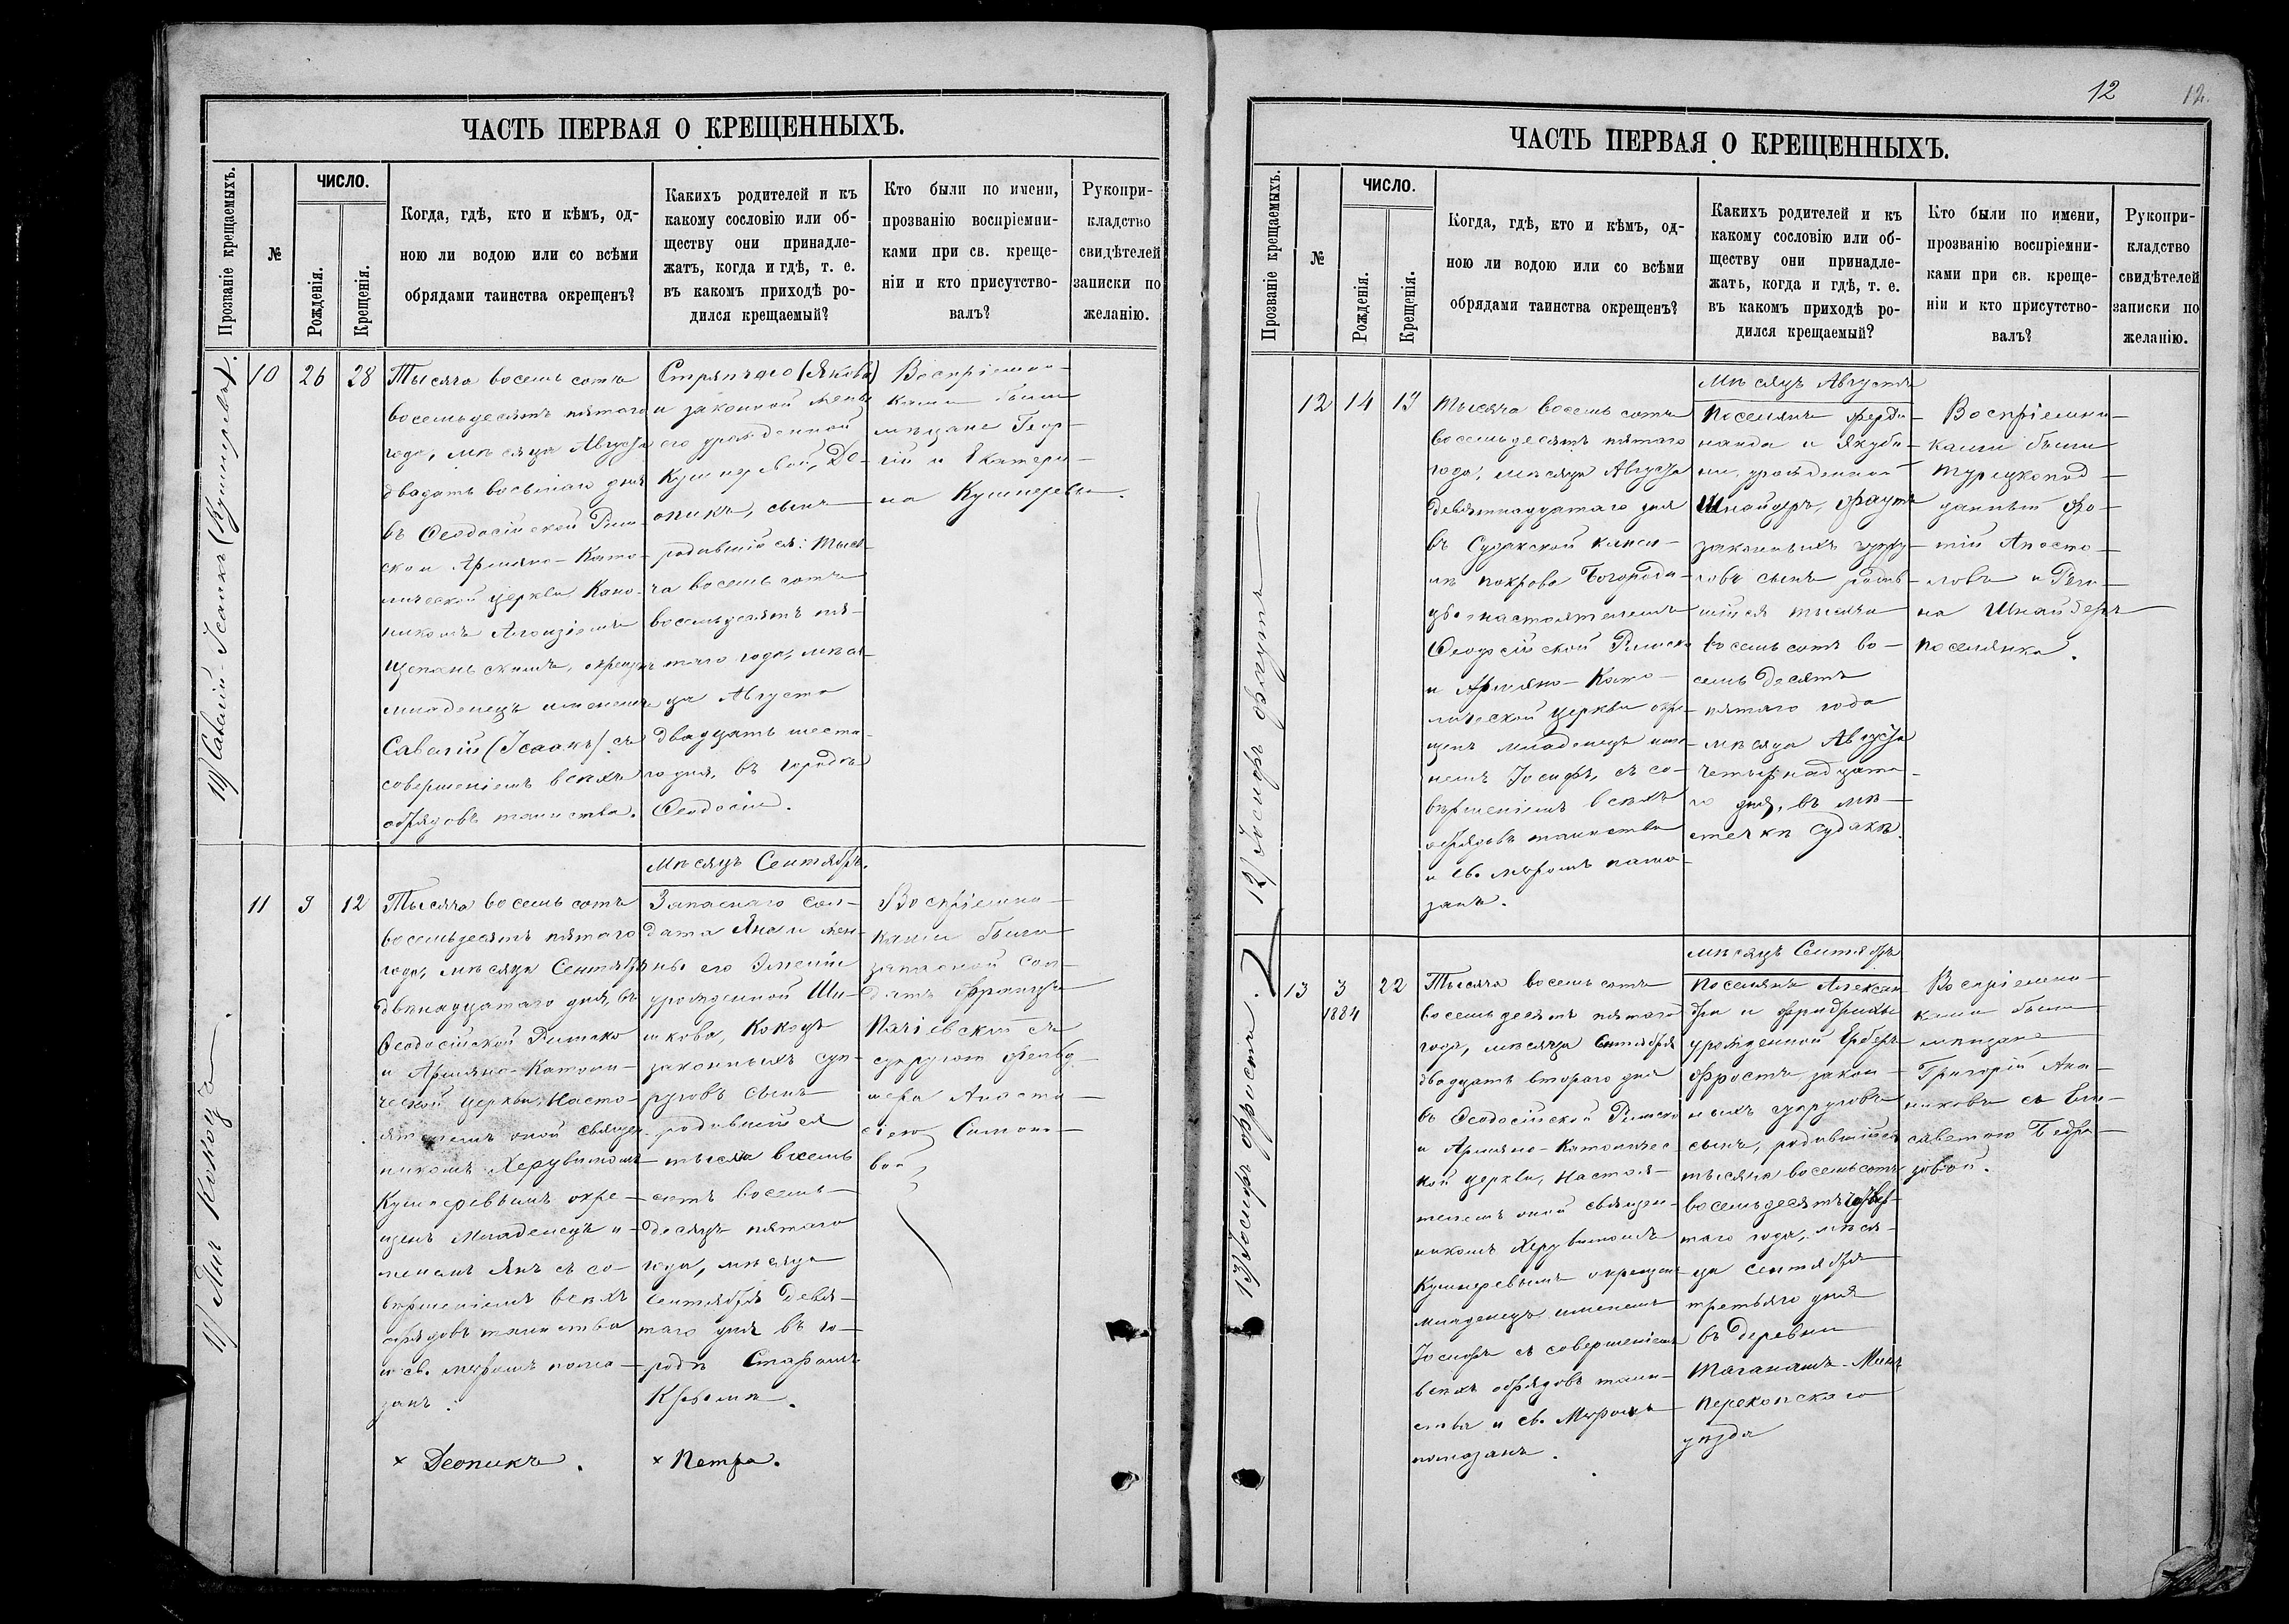 ЧАСТЬ ПЕРВАЯ О КРЕЩЕННЫХЪ.
Прозваніе крещаемыхъ.
№
ЧИСЛО.
Рожденія.
Крещенія.
Когда, гдѣ, кто и кѣмъ, од-
ною ли водою или со всѣми
обрядами таинства окрещенъ?
Какихъ родителей и къ
какому сословію или об-
ществу они принадле-
жатъ, когда и гдѣ, т. е.
въ какомъ приходѣ ро-
дился крещаемый?
Кто были по имени,
прозванію воспріемни-
ками при св. креще-
ніи и кто присутство-
валъ?
Рукопри-
кладство
свидѣтелей
записки по
желанію.
10) Савелій-Исаакъ (Кушнеревъ).
10
26
28
Тысяча восемь сотъ
восемьдесятъ пятаго
года, мѣсяца Августа
двадцать восьмаго дня
въ Ѳеодосійской Рим-
ско и Армяно-Като-
лической церкви Кано-
никомъ Алоизіемъ
окрещенъ
младенецъ именемъ
Савелій (Исаакъ) съ
совершеніемъ всѣхъ
обрядовъ таинства.
Стряпчаго (Якова)
и законной жены
его урожденной
Кушнеревой, Де-
опикъ, сынъ
родившійся: тыся-
ча восемь сотъ
восемьдесятъ пя-
таго года, мѣся-
ца Августа
двадцать шеста-
го дня, въ городѣ
Ѳеодосіи.
Воспріемни-
ками были
мѣщане Геор-
гій и Екатери-
на Кушнеревы.
11) Янъ Кокоцъ
Мѣсяцъ Сентябрь.
11
9
12
Тысяча восемь сотъ
восемьдесятъ пятаго
года, мѣсяца Сентября
двѣнадцатаго дня, въ
Ѳеодосійской Римско
и Армяно-Католи-
ческой церкви, Насто-
ятелемъ оной священ-
никомъ Херувимомъ
Кушнеревымъ окре-
щенъ Младенецъ и-
менемъ Янъ съ со-
вершеніемъ всѣхъ
обрядовъ таинства
и св. мѵромъ пома-
занъ.
Запаснаго сол-
дата Яна и же-
ны его
урожденной Ши-
шкова, Кокоцъ
законныхъ суп-
руговъ сынъ
родившійся
тысяча восемь
сотъ восемь-
десятъ пятаго
года, мѣсяца
Сентября девя-
таго дня въ го-
родѣ Старомъ
Крыму.
Воспріемни-
ками были
запасной сол-
датъ Францъ
Пачіевскій съ
супругою фельд-
шера Анаста-
сіею Симоно-
вой
× Деопикъ.
× Петра.
12
12.
ЧАСТЬ ПЕРВАЯ О КРЕЩЕННЫХЪ.
Прозваніе крещаемыхъ.
№
ЧИСЛО.
Рожденія.
Крещенія.
Когда, гдѣ, кто и кѣмъ, од-
ною ли водою или со всѣми
обрядами таинства окрещенъ?
Какихъ родителей и къ
какому сословію или об-
ществу они принадле-
жатъ, когда и гдѣ, т. е.
въ какомъ приходѣ ро-
дился крещаемый?
Кто были по имени,
прозванію воспріемни-
ками при св. креще-
ніи и кто присутство-
валъ?
Рукопри-
кладство
свидѣтелей
записки по
желанію.
12) Іосифъ Фаутъ
Мѣсяцъ Августъ
12
14
19
Тысяча восемь сотъ
восемьдесятъ пятаго
года, мѣсяца Августа
девятнадцатаго дня
въ Судакской капел-
лѣ покрова Богороди-
цы настоятелемъ
Ѳеодосійской Римско
и Армяно-Като-
лической церкви окре-
щенъ младенецъ име-
немъ Іосифъ, съ со-
вершеніемъ всѣхъ
обрядовъ таинства
и св. мѵромъ пома-
занъ.
Поселянъ Ферди-
нанда и Якуби-
ны, урожденной
Шнайдеръ, Фаутъ
законныхъ супру-
говъ сынъ родив-
шійся тысяча
восемь сотъ во-
семь десятъ
пятаго года
мѣсяца Августа
четырнадцата-
го дня, въ мѣ-
стечкѣ Судакѣ.
Воспріемни-
ками были
Турецкопод-
данный Фо-
тій Апосто-
ловъ и Реги-
на Шнайдеръ
поселянка.
13) Іосифъ Фростъ.
Мѣсяцъ Сентябрь
13
3
1884
22
Тысяча восемь сотъ
восемьдесятъ пятаго
года, мѣсяца Сентября
двадцать втораго дня
въ Ѳеодосійской Римско
и Армяно-Католичес-
кой церкви, Настоя-
телемъ оной священ-
никомъ Херувимомъ
Кушнеревымъ окрещенъ
младенецъ именемъ
Іосифъ съ совершеніемъ
всѣхъ обрядовъ таин-
ства и св. Мѵромъ
помазанъ.
Поселянъ Алексан-
дра и Фридрики
урожденной Герберъ
Фростъ закон-
ныхъ супруговъ
сынъ, родившійся
тысяча восемьсотъ
восемьдесятъ четвер-
таго года, мѣся-
ца Сентября
третьяго дня
въ деревни
Таганашъ-Минъ
Перекопскаго
уѣзда
Воспріемни-
ками были
мѣщане
Григорій Ана-
никовъ съ Ели-
саветою